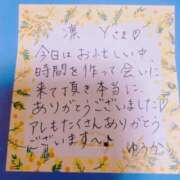 凛 Yさま♡
今日はお忙しい中、
時間を作って会いに
来て頂き本当に
ありがとうございました!
アレもたくさんありがとう
ございます〜♪
ゆうか